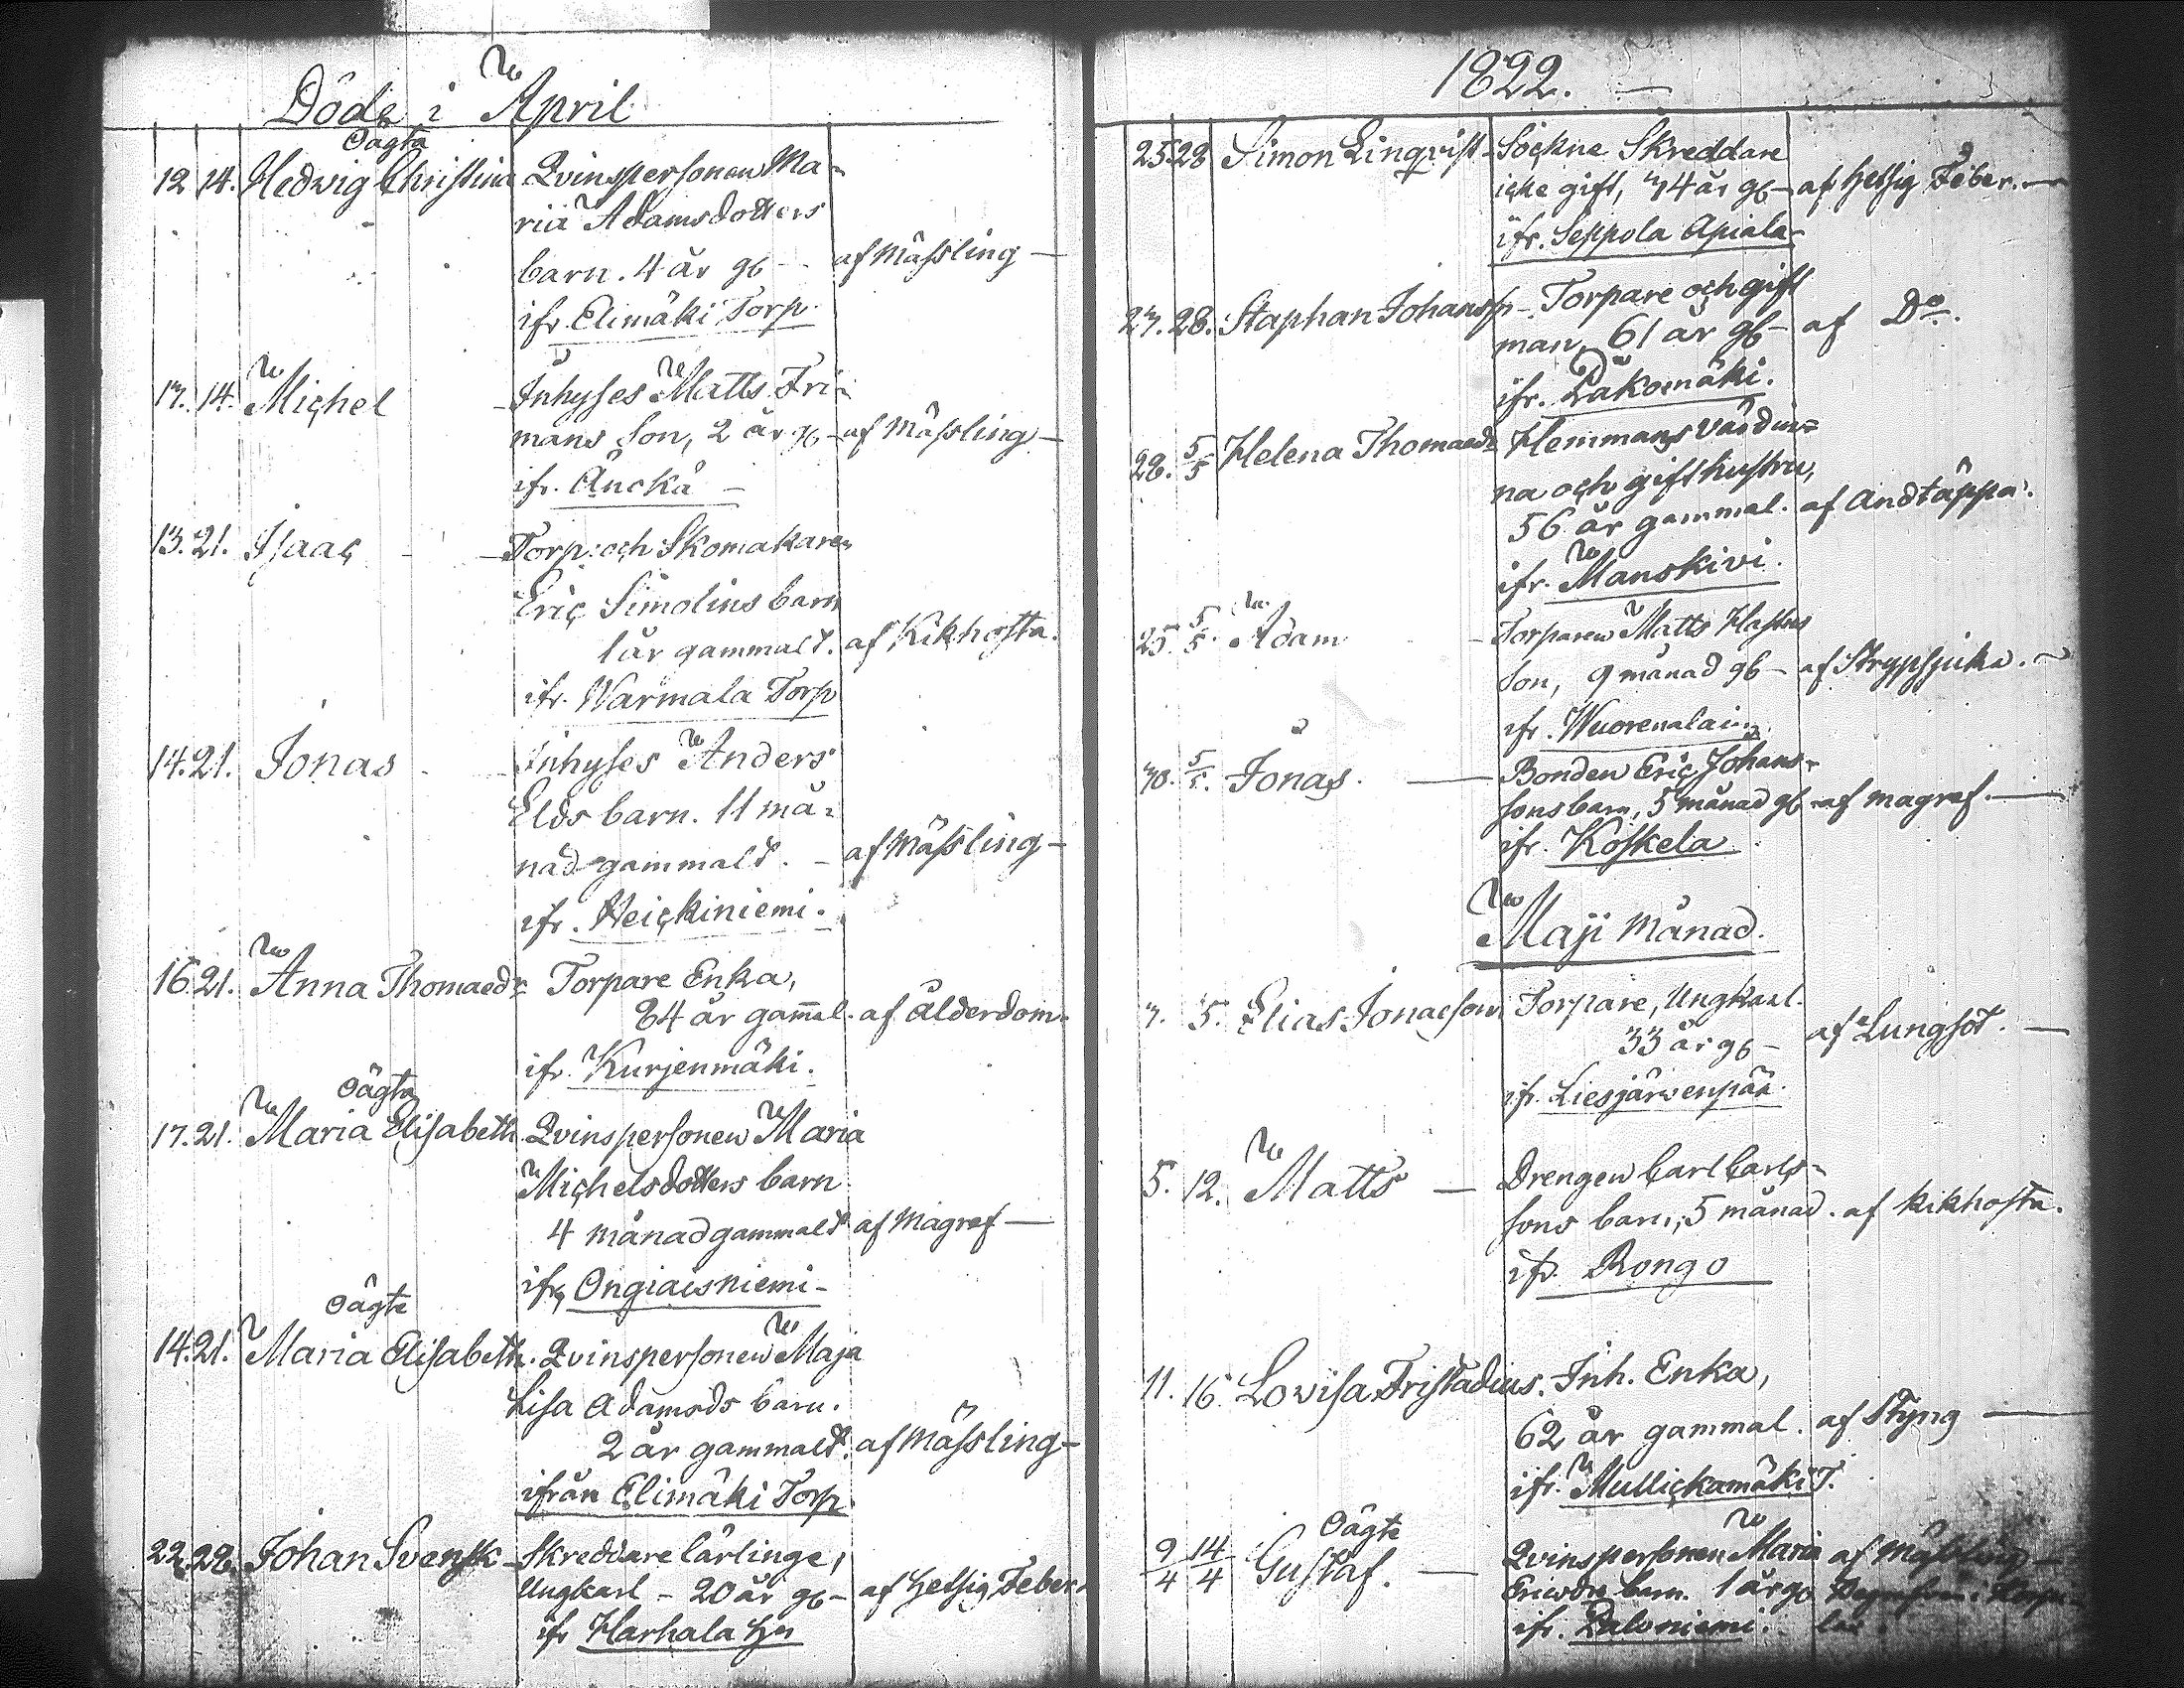 Döde i April
12 14. Oägta
Hedwig Christina Qvinspersonen Ma-
ria Adamsdotters
barn. 4 år gl – af Mässling –
ifr. Elimäki Torp.
17. 14. Michel – Inhyses Matts Fri-
mans Son, 2 år gl – af Mässling –
ifr. Ancka –
13. 21. Isaac – Torp. och Skomakaren
Eric Simolins barn
1 år gammalt. af Kikhosta.
ifr. Warmala Torp
14. 21. Jonas – Inhyses Anders
Elds barn. 11 må-
nad gammalt. – af Mässling –
ifr. Heickiniemi.
16 21. Anna Thomaedr Torpare Enka,
84 år gammal. af Ålderdom.
ifr. Kurjenmäki.
Oägta
17. 21. Maria Elisabeth Qvinspersonen Maria
Michelsdotters barn
4 månad gammalt af Magref –
ifr Ongiaisniemi –
Oägte
14. 21. Maria Elisabeth. Qvinspersonen Maja
Lisa Adamsds barn.
2 år gammalt. af Mässling –
ifrån Elimäki Torp.
22. 28. Johan Svensk – Skreddare lärlinge,
Ungkarl – 20 år gl – af Hetsig Feber.
ifr Harhala
1822. –
25. 28 Simon Linqvist – Sockne Skreddare
icke gift, 74 år gl – af Hetsig Feber. –
ifr. Seppola Apiala
27. 28. Staphan Johanss – Torpare och gift
man, 61 år gl – af Do.
ifr. Läkomäki.
28. 5/5 Helena Thomaedr Hemmans värdin-
na och gift hustru,
56 år gammal. af Andtäppa.
ifr. Manskivi.
25. 5/5. Adam – Torparen Matts
Son, 9 månad gl – af Strypsjuka. –
ifr. Wuorenalain
30. 5/5. Jonas. – Bonden Eric Johans-
sons barn, 5 månad gl – af magref. –
ifr. Koskela
Maji Månad.
3. 5. Elias Jonaeson Torpare, Ungkarl.
33 år gl – af Lungsot. –
ifr. Liesjärwenpää.
5. 12. Matts – Drengen Carl Carls-
sons barn, 5 månad. af kikhosta.
ifr. Rongo
11. 16. Lovisa Tristadius. Inh. Enka,
62 år gammal. af Styng –
ifr. Mullickamäki T.
Oägte
9/4 14/4 Gustaf. – Qvinspersonen Maria af Mässling –
barn. 1 år gl
ifr. Paloniemi.